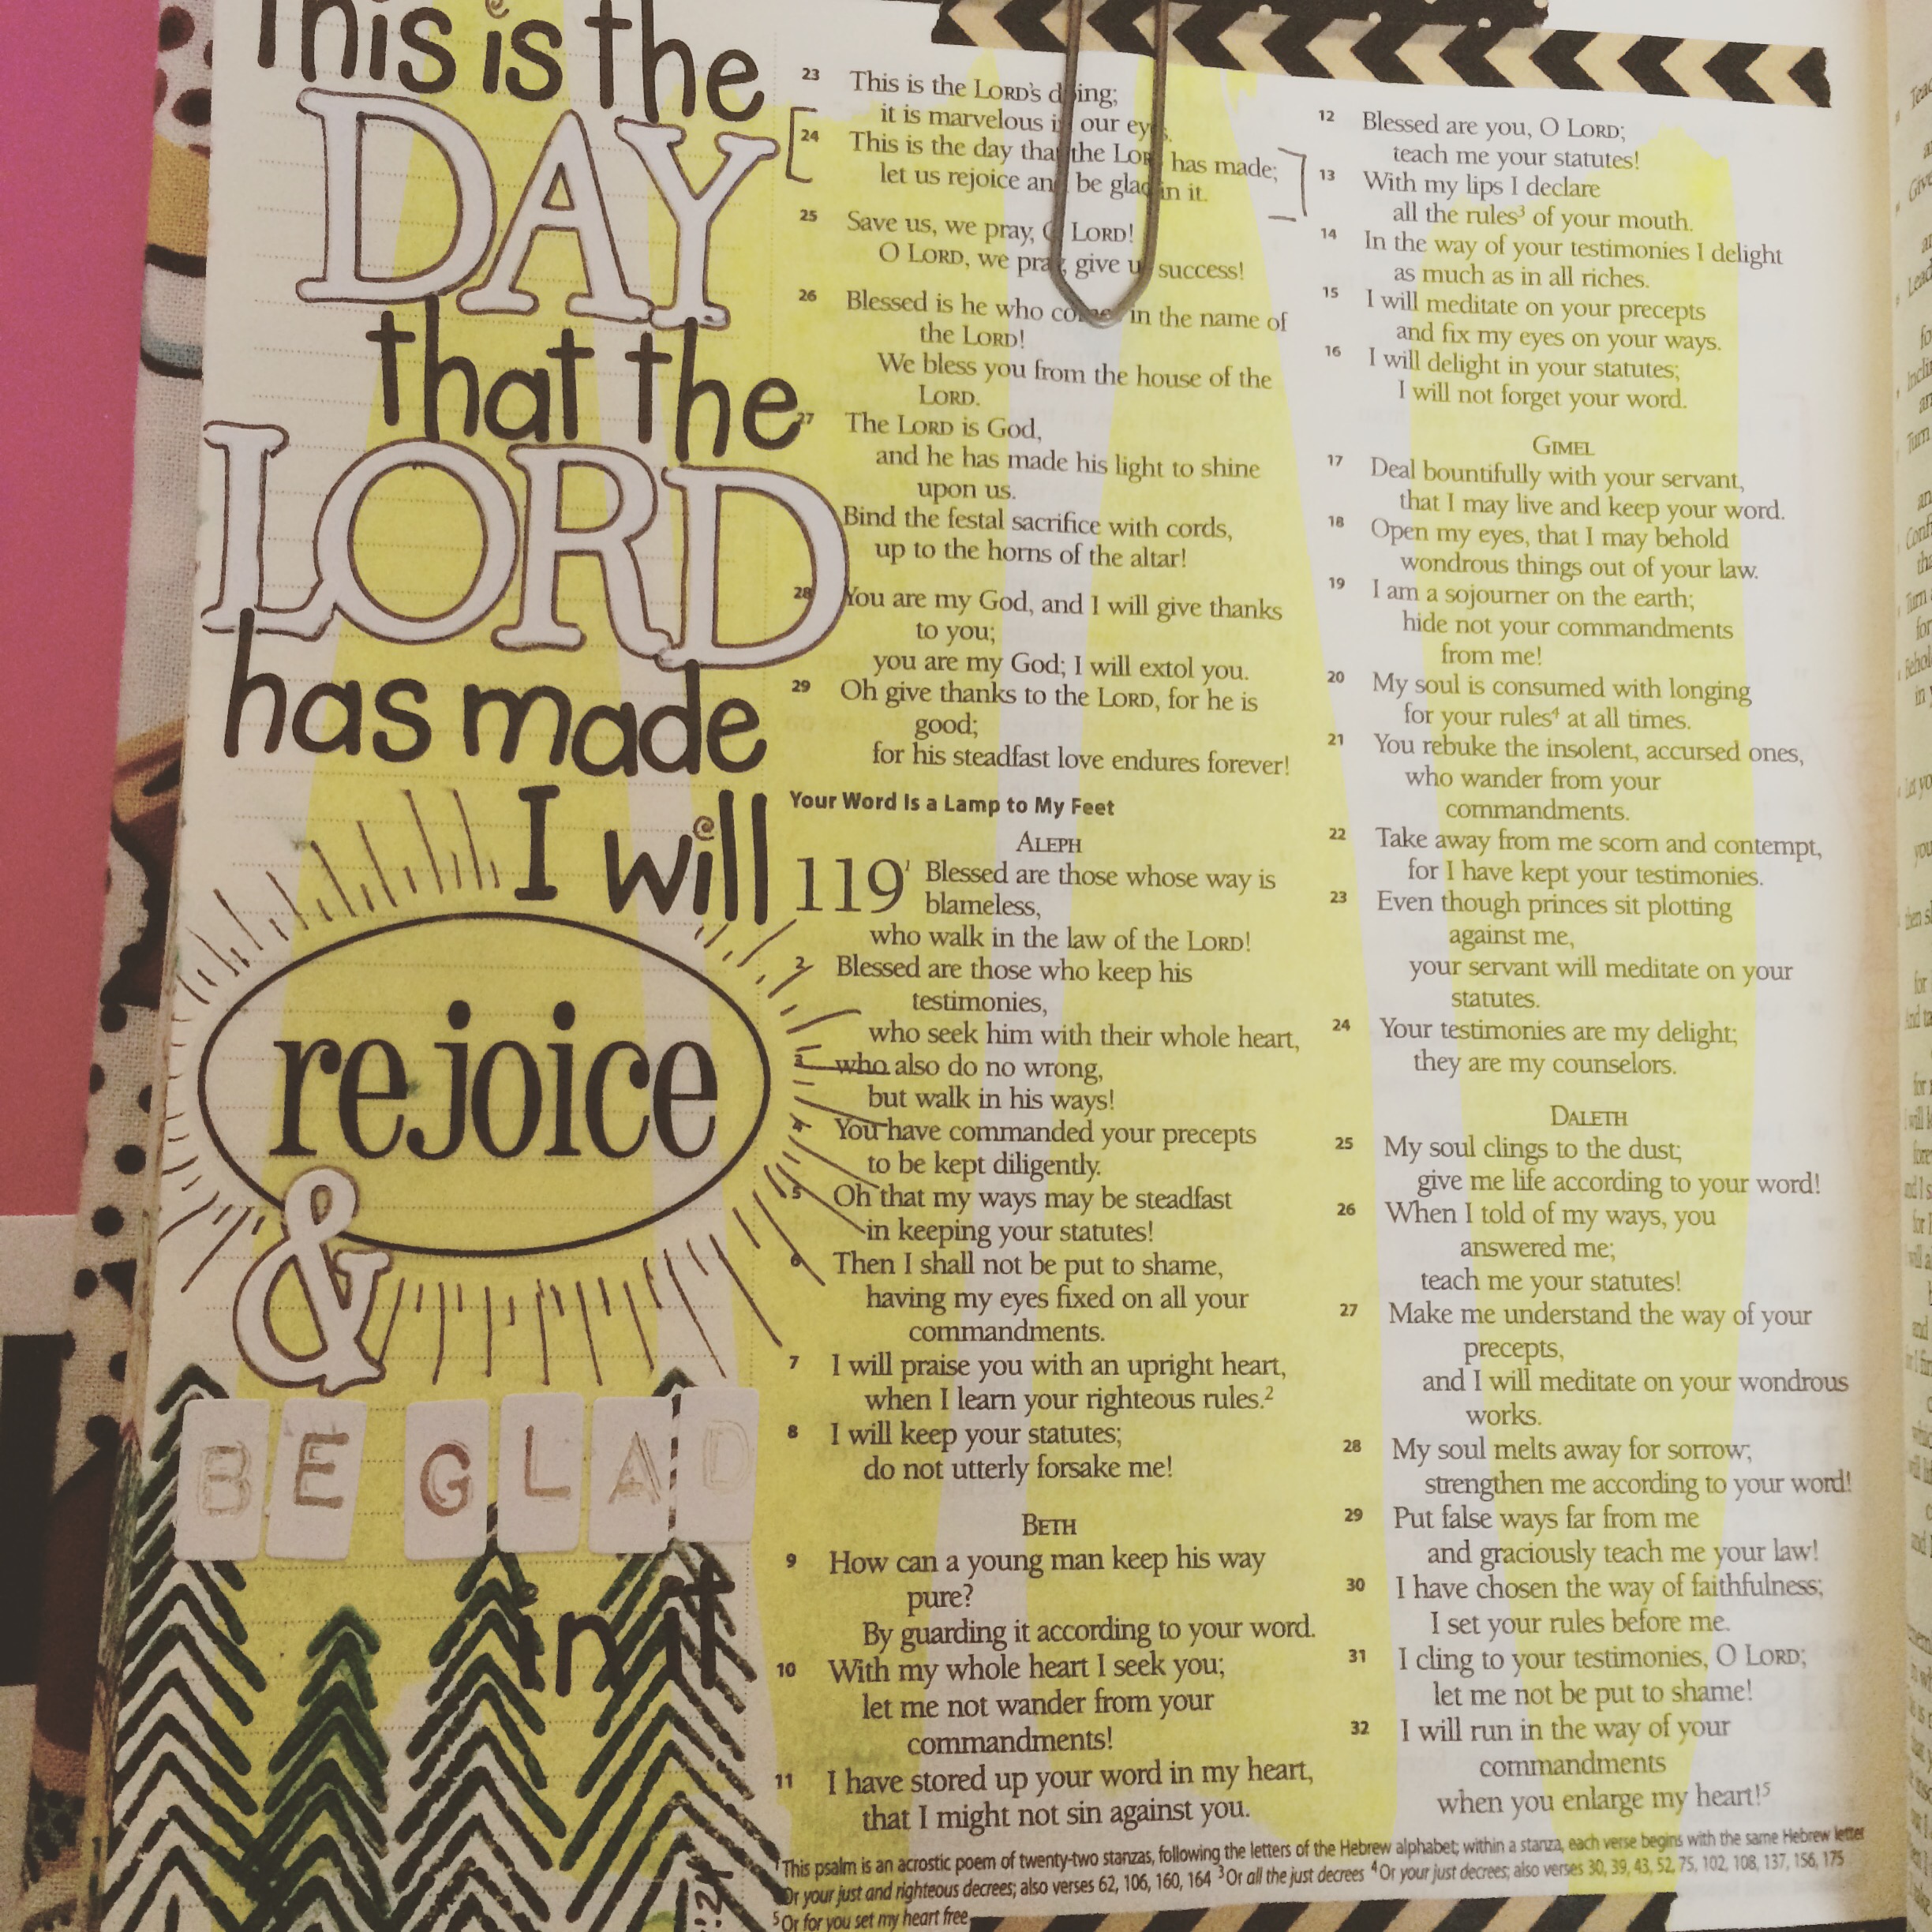 This is the
DAY
that the
LORD
has made
I will
rejoice
&
BE GLAD
in it
23 This is the LORD's doing;
it is marvelous in our eyes.
24 This is the day that the LORD has made;
let us rejoice and be glad in it.
25 Save us, we pray, O LORD!
O LORD, we pray, give us success!
26 Blessed is he who comes in the name of
the LORD!
We bless you from the house of the
LORD.
27 The LORD is God,
and he has made his light to shine
upon us.
Bind the festal sacrifice with cords,
up to the horns of the altar!
28 You are my God, and I will give thanks
to you;
you are my God; I will extol you.
29 Oh give thanks to the LORD, for he is
good;
for his steadfast love endures forever!
Your Word Is a Lamp to My Feet
ALEPH
119¹ Blessed are those whose way is
blameless,
who walk in the law of the LORD!
2 Blessed are those who keep his
testimonies,
who seek him with their whole heart,
3 who also do no wrong,
but walk in his ways!
4 You have commanded your precepts
to be kept diligently.
5 Oh that my ways may be steadfast
in keeping your statutes!
6 Then I shall not be put to shame,
having my eyes fixed on all your
commandments.
7 I will praise you with an upright heart,
when I learn your righteous rules.²
8 I will keep your statutes;
do not utterly forsake me!
BETH
9 How can a young man keep his way
pure?
By guarding it according to your word.
10 With my whole heart I seek you;
let me not wander from your
commandments!
11 I have stored up your word in my heart,
that I might not sin against you.
12 Blessed are you, O LORD;
teach me your statutes!
13 With my lips I declare
all the rules³ of your mouth.
14 In the way of your testimonies I delight
as much as in all riches.
15 I will meditate on your precepts
and fix my eyes on your ways.
16 I will delight in your statutes;
I will not forget your word.
GIMEL
17 Deal bountifully with your servant,
that I may live and keep your word.
18 Open my eyes, that I may behold
wondrous things out of your law.
19 I am a sojourner on the earth;
hide not your commandments
from me!
20 My soul is consumed with longing
for your rules⁴ at all times.
21 You rebuke the insolent, accursed ones,
who wander from your
commandments.
22 Take away from me scorn and contempt,
for I have kept your testimonies.
23 Even though princes sit plotting
against me,
your servant will meditate on your
statutes.
24 Your testimonies are my delight;
they are my counselors.
DALETH
25 My soul clings to the dust;
give me life according to your word!
26 When I told of my ways, you
answered me;
teach me your statutes!
27 Make me understand the way of your
precepts,
and I will meditate on your wondrous
works.
28 My soul melts away for sorrow;
strengthen me according to your word!
29 Put false ways far from me
and graciously teach me your law!
30 I have chosen the way of faithfulness;
I set your rules before me.
31 I cling to your testimonies, O LORD;
let me not be put to shame!
32 I will run in the way of your
commandments
when you enlarge my heart!⁵
¹This psalm is an acrostic poem of twenty-two stanzas, following the letters of the Hebrew alphabet; within a stanza, each verse begins with the same Hebrew letter
Or your just and righteous decrees; also verses 62, 106, 160, 164 ³Or all the just decrees ⁴Or your just decrees; also verses 30, 39, 43, 52, 75, 102, 108, 137, 156, 175
⁵Or for you set my heart free